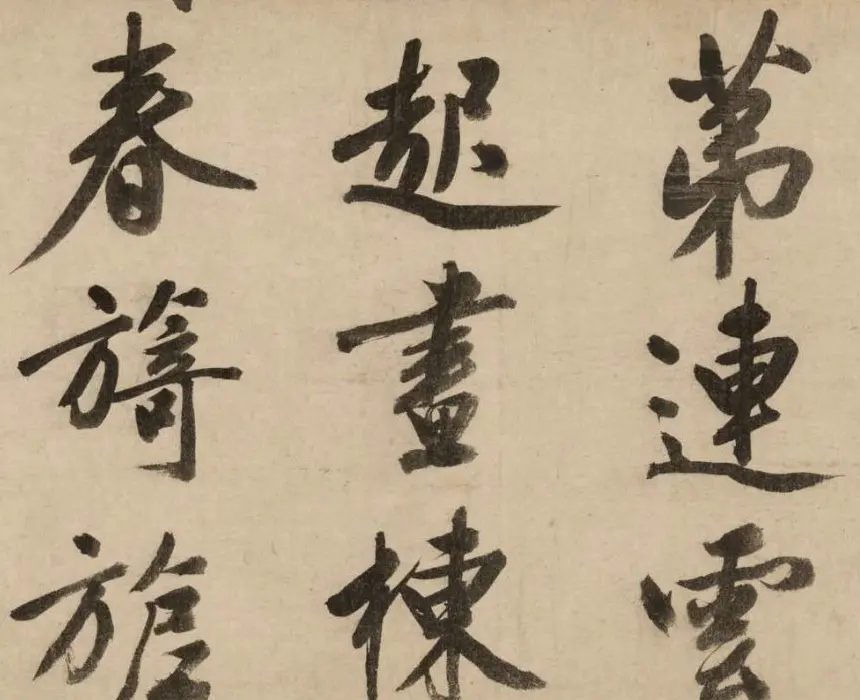 第連雲
起畫棟
春旖旎